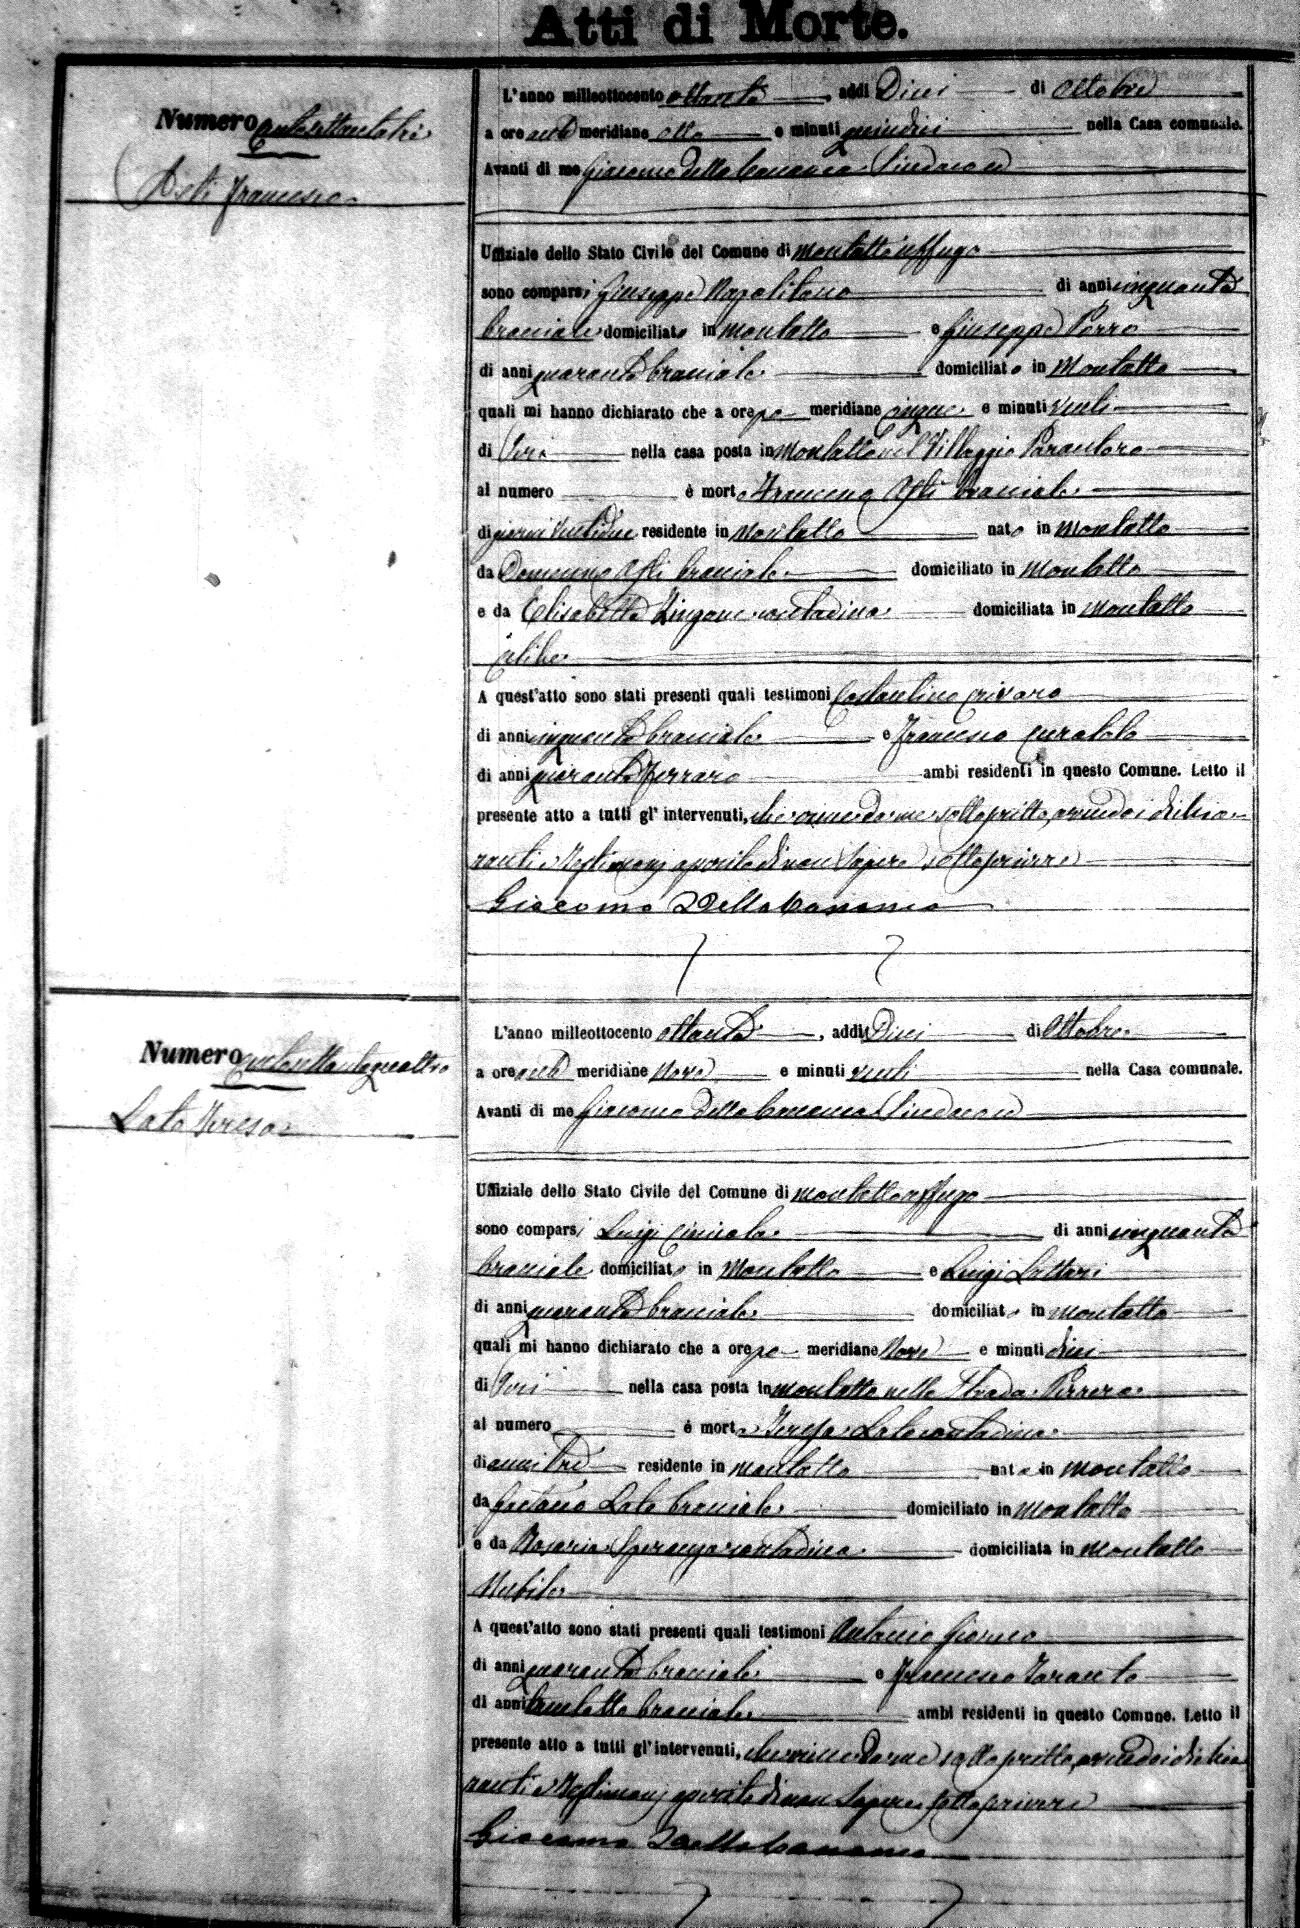 Atti di Morte.
Numero centosettantatre
Asti Francesco
L'anno milleottocento ottanta, addì Dieci di Ottobre
a ore anti meridiane otto e minuti quindici nella Casa comunale.
Avanti di me Giacomo Della Cananea Sindaco ed
Uffiziale dello Stato Civile del Comune di Montalto Uffugo
sono comparsi Giuseppe Napolitano di anni cinquanta
bracciale domiciliato in Montalto e Giuseppe Porro
di anni quaranta bracciale domiciliato in Montalto
quali mi hanno dichiarato che a ore po meridiane cinque e minuti venti
di Ieri nella casa posta in Montalto nel Villaggio Parantoro
al numero è morto Francesco bracciale
di giorni ventidue residente in Montalto nato in Montalto
da Domenico bracciale domiciliato in Montalto
e da Elisabetta Zingone contadina domiciliata in Montalto
celibe
A quest'atto sono stati presenti quali testimoni Costantino Crivaro
di anni cinquanta bracciale e Francesco Curatolo
di anni quaranta ferraro ambi residenti in questo Comune. Letto il
presente atto a tutti gl'intervenuti, che viene da me sottoscritto, avendo i dichia-
ranti e Testimonj asserito di non sapere sottoscrivere
Giacomo Della Cananea
Numero centosettantaquattro
Lato Teresa
L'anno milleottocento ottanta, addì Dieci di Ottobre
a ore anti meridiane Nove e minuti venti nella Casa comunale.
Avanti di me Giacomo Della Cananea Sindaco ed
Uffiziale dello Stato Civile del Comune di Montalto Uffugo
sono comparsi Luigi di anni cinquanta
bracciale domiciliato in Montalto e Luigi Lattari
di anni quaranta bracciale domiciliato in Montalto
quali mi hanno dichiarato che a ore po meridiane Nove e minuti dieci
di Ieri nella casa posta in Montalto nella Strada
al numero è morta Teresa Lato contadina
di anni tre residente in Montalto nata in Montalto
da Gaetano Lato bracciale domiciliato in Montalto
e da Rosaria Speranza contadina domiciliata in Montalto
Nubile
A quest'atto sono stati presenti quali testimoni Antonio Giorno
di anni quaranta bracciale e Francesco Taranto
di anni trentotto bracciale ambi residenti in questo Comune. Letto il
presente atto a tutti gl'intervenuti, che viene da me sottoscritto, avendo i dichia
ranti e Testimonj asserito di non sapere sottoscrivere
Giacomo Della Cananea